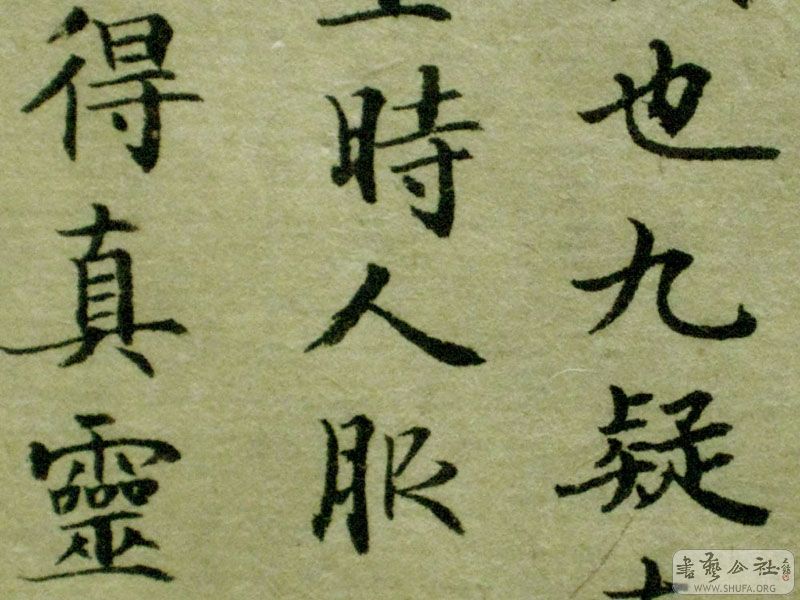 也九疑
時人服
得真靈
書藝公社
WWW.SHUFA.ORG